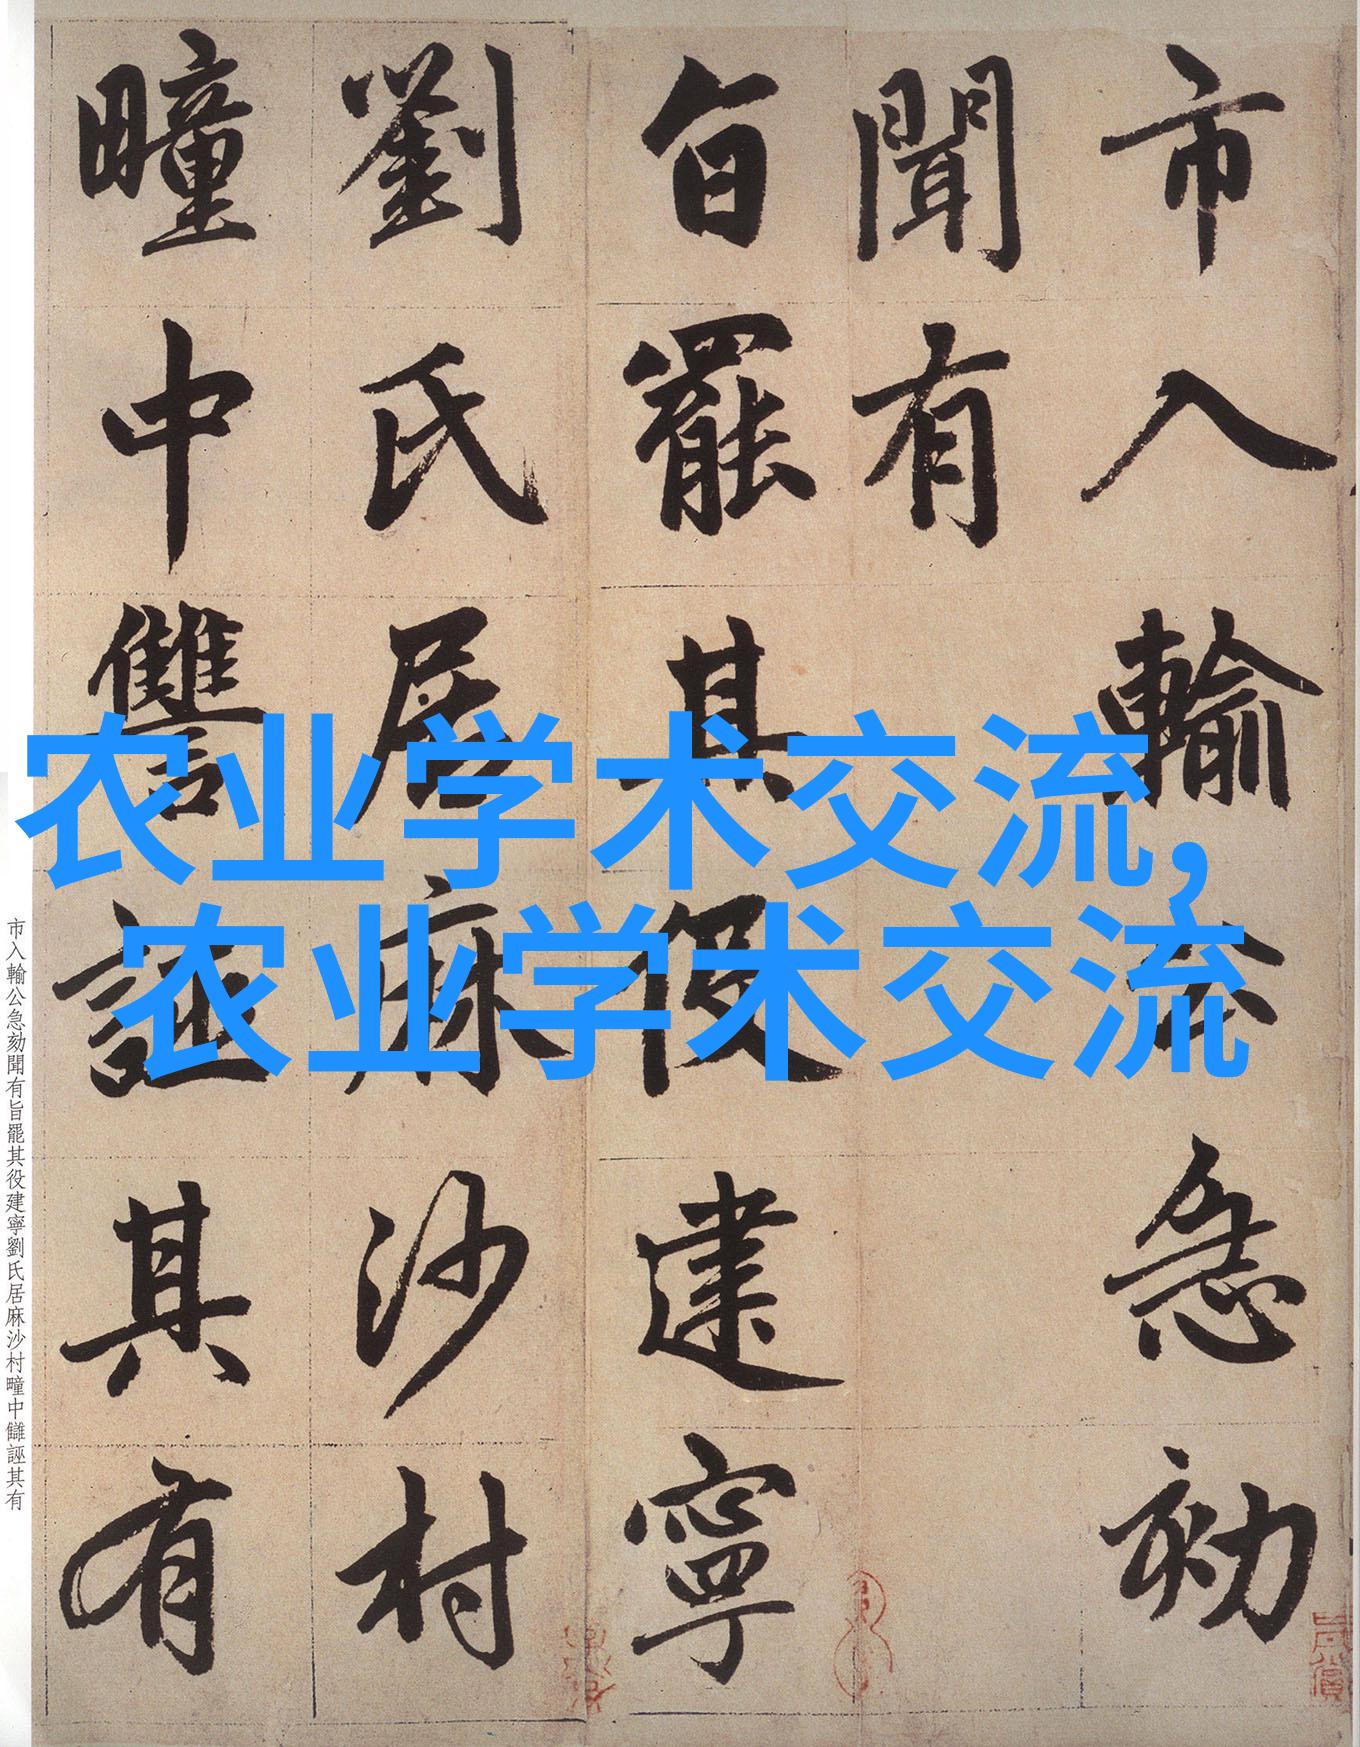 市入輸公急劾
聞有
旨罷其役建寧
劉氏居麻沙村
疃中讐誣其有
农业学术交流,
农业学术交流
市入輸公急劾聞有旨罷其役建寧劉氏居麻沙村疃中讎誣其有